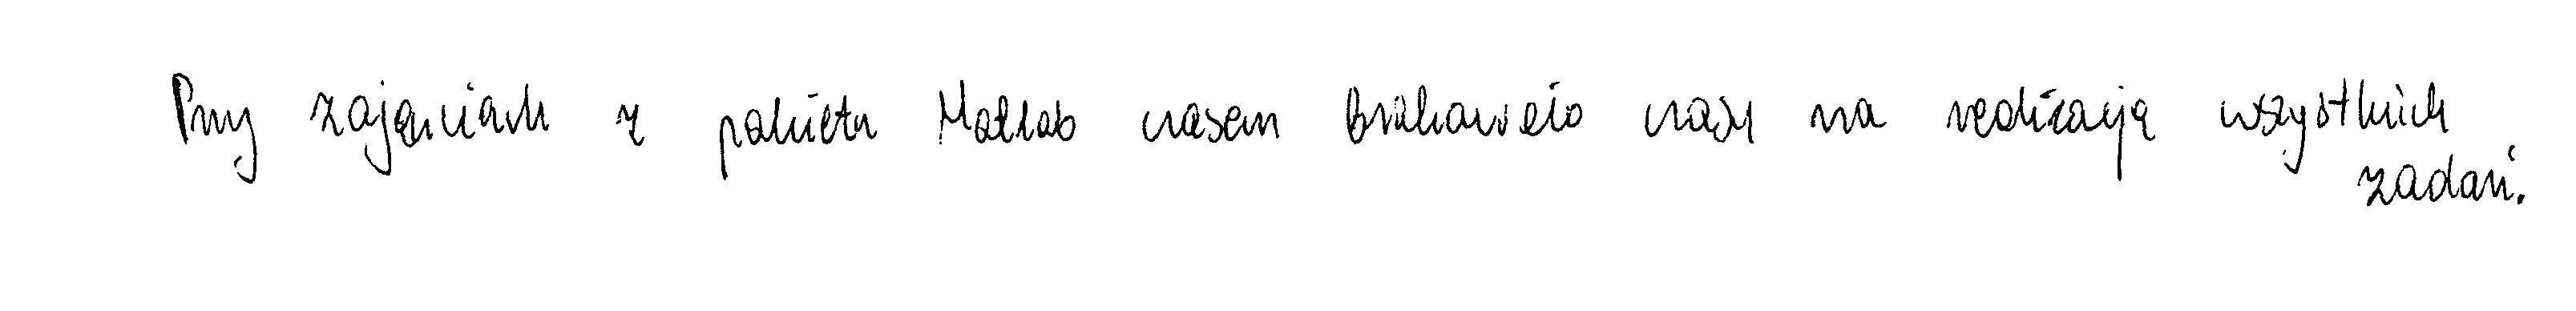 Przy zajęciach z pakietu Matlab czasem brakowało czasu na realizację wszystkich
zadań.